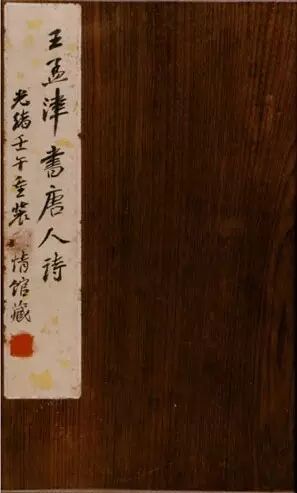 王孟津書唐人詩
光緒壬午重裝 情館藏